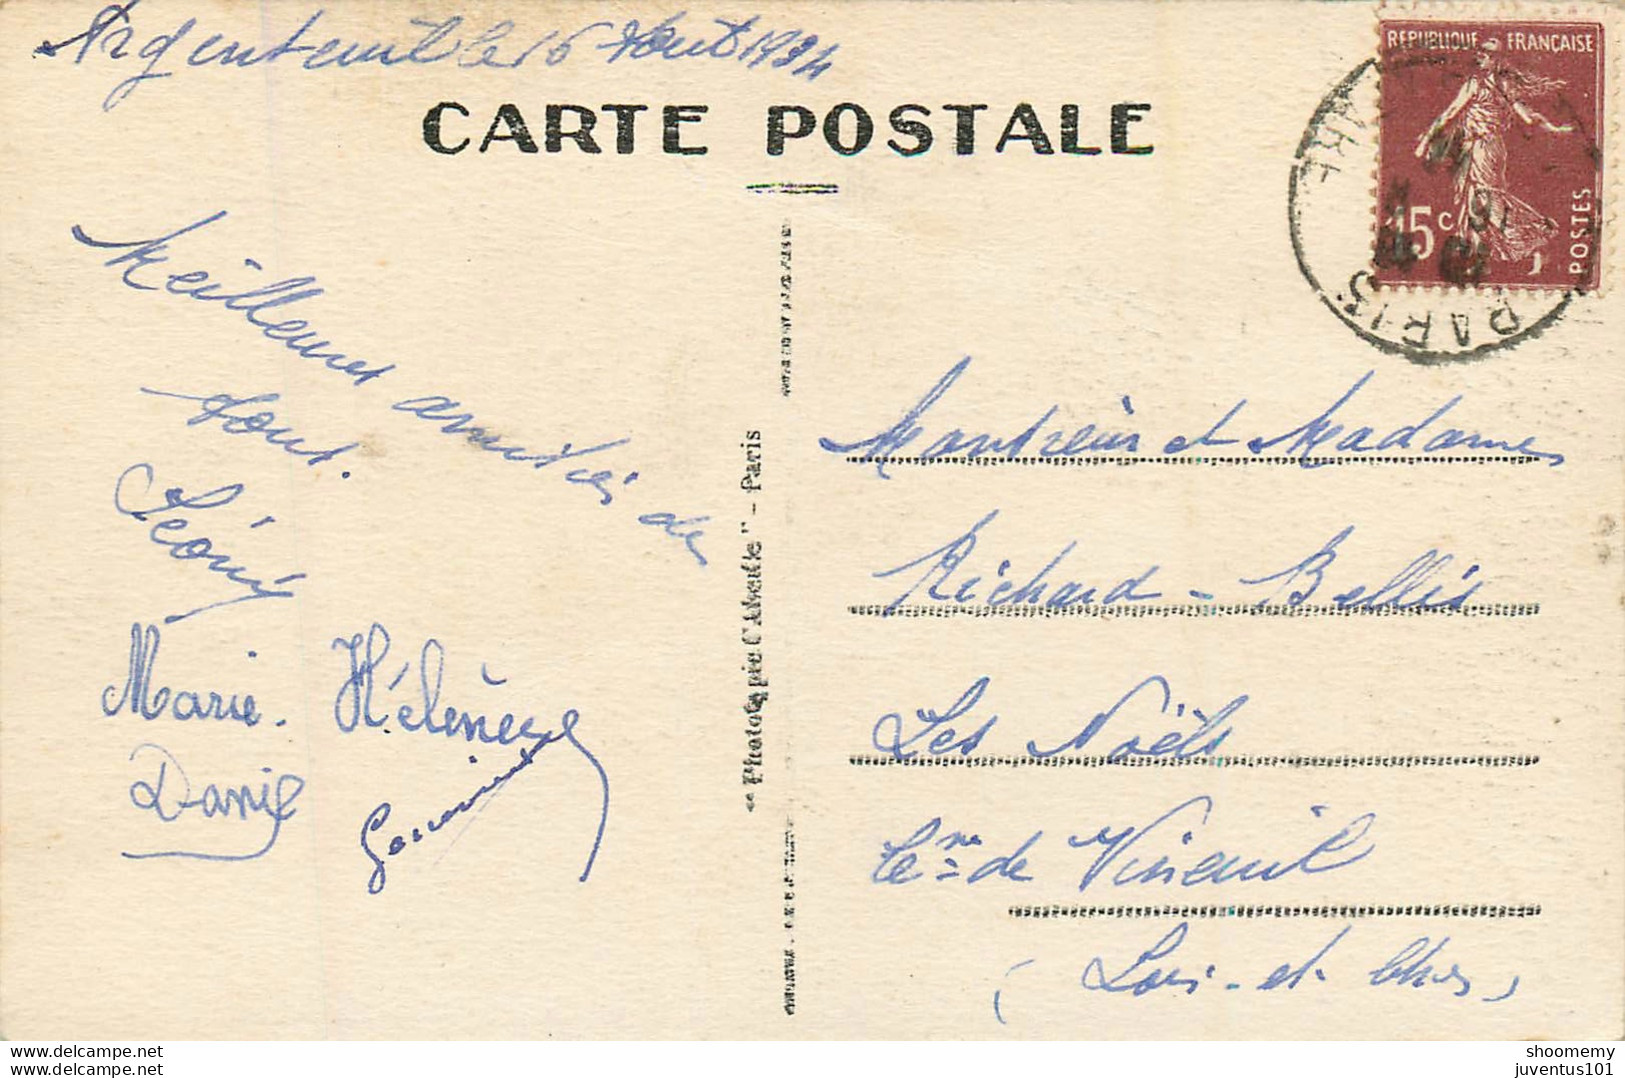 Argenteuil le 16 Aout 1934
CARTE POSTALE
REPUBLIQUE FRANÇAISE
15c
POSTES
PARIS
Meilleures amitiés de
tous.
Léonie
Marie. Hélène
Daniel
"Phototypie L'Abeille" - Paris
Monsieur et Madame
Richard - Bellis
Les Noëls
Cne de Vineuil
(Loir-et-Cher)
www.delcampe.net
www.delcampe.net
shoomemy
juventus101